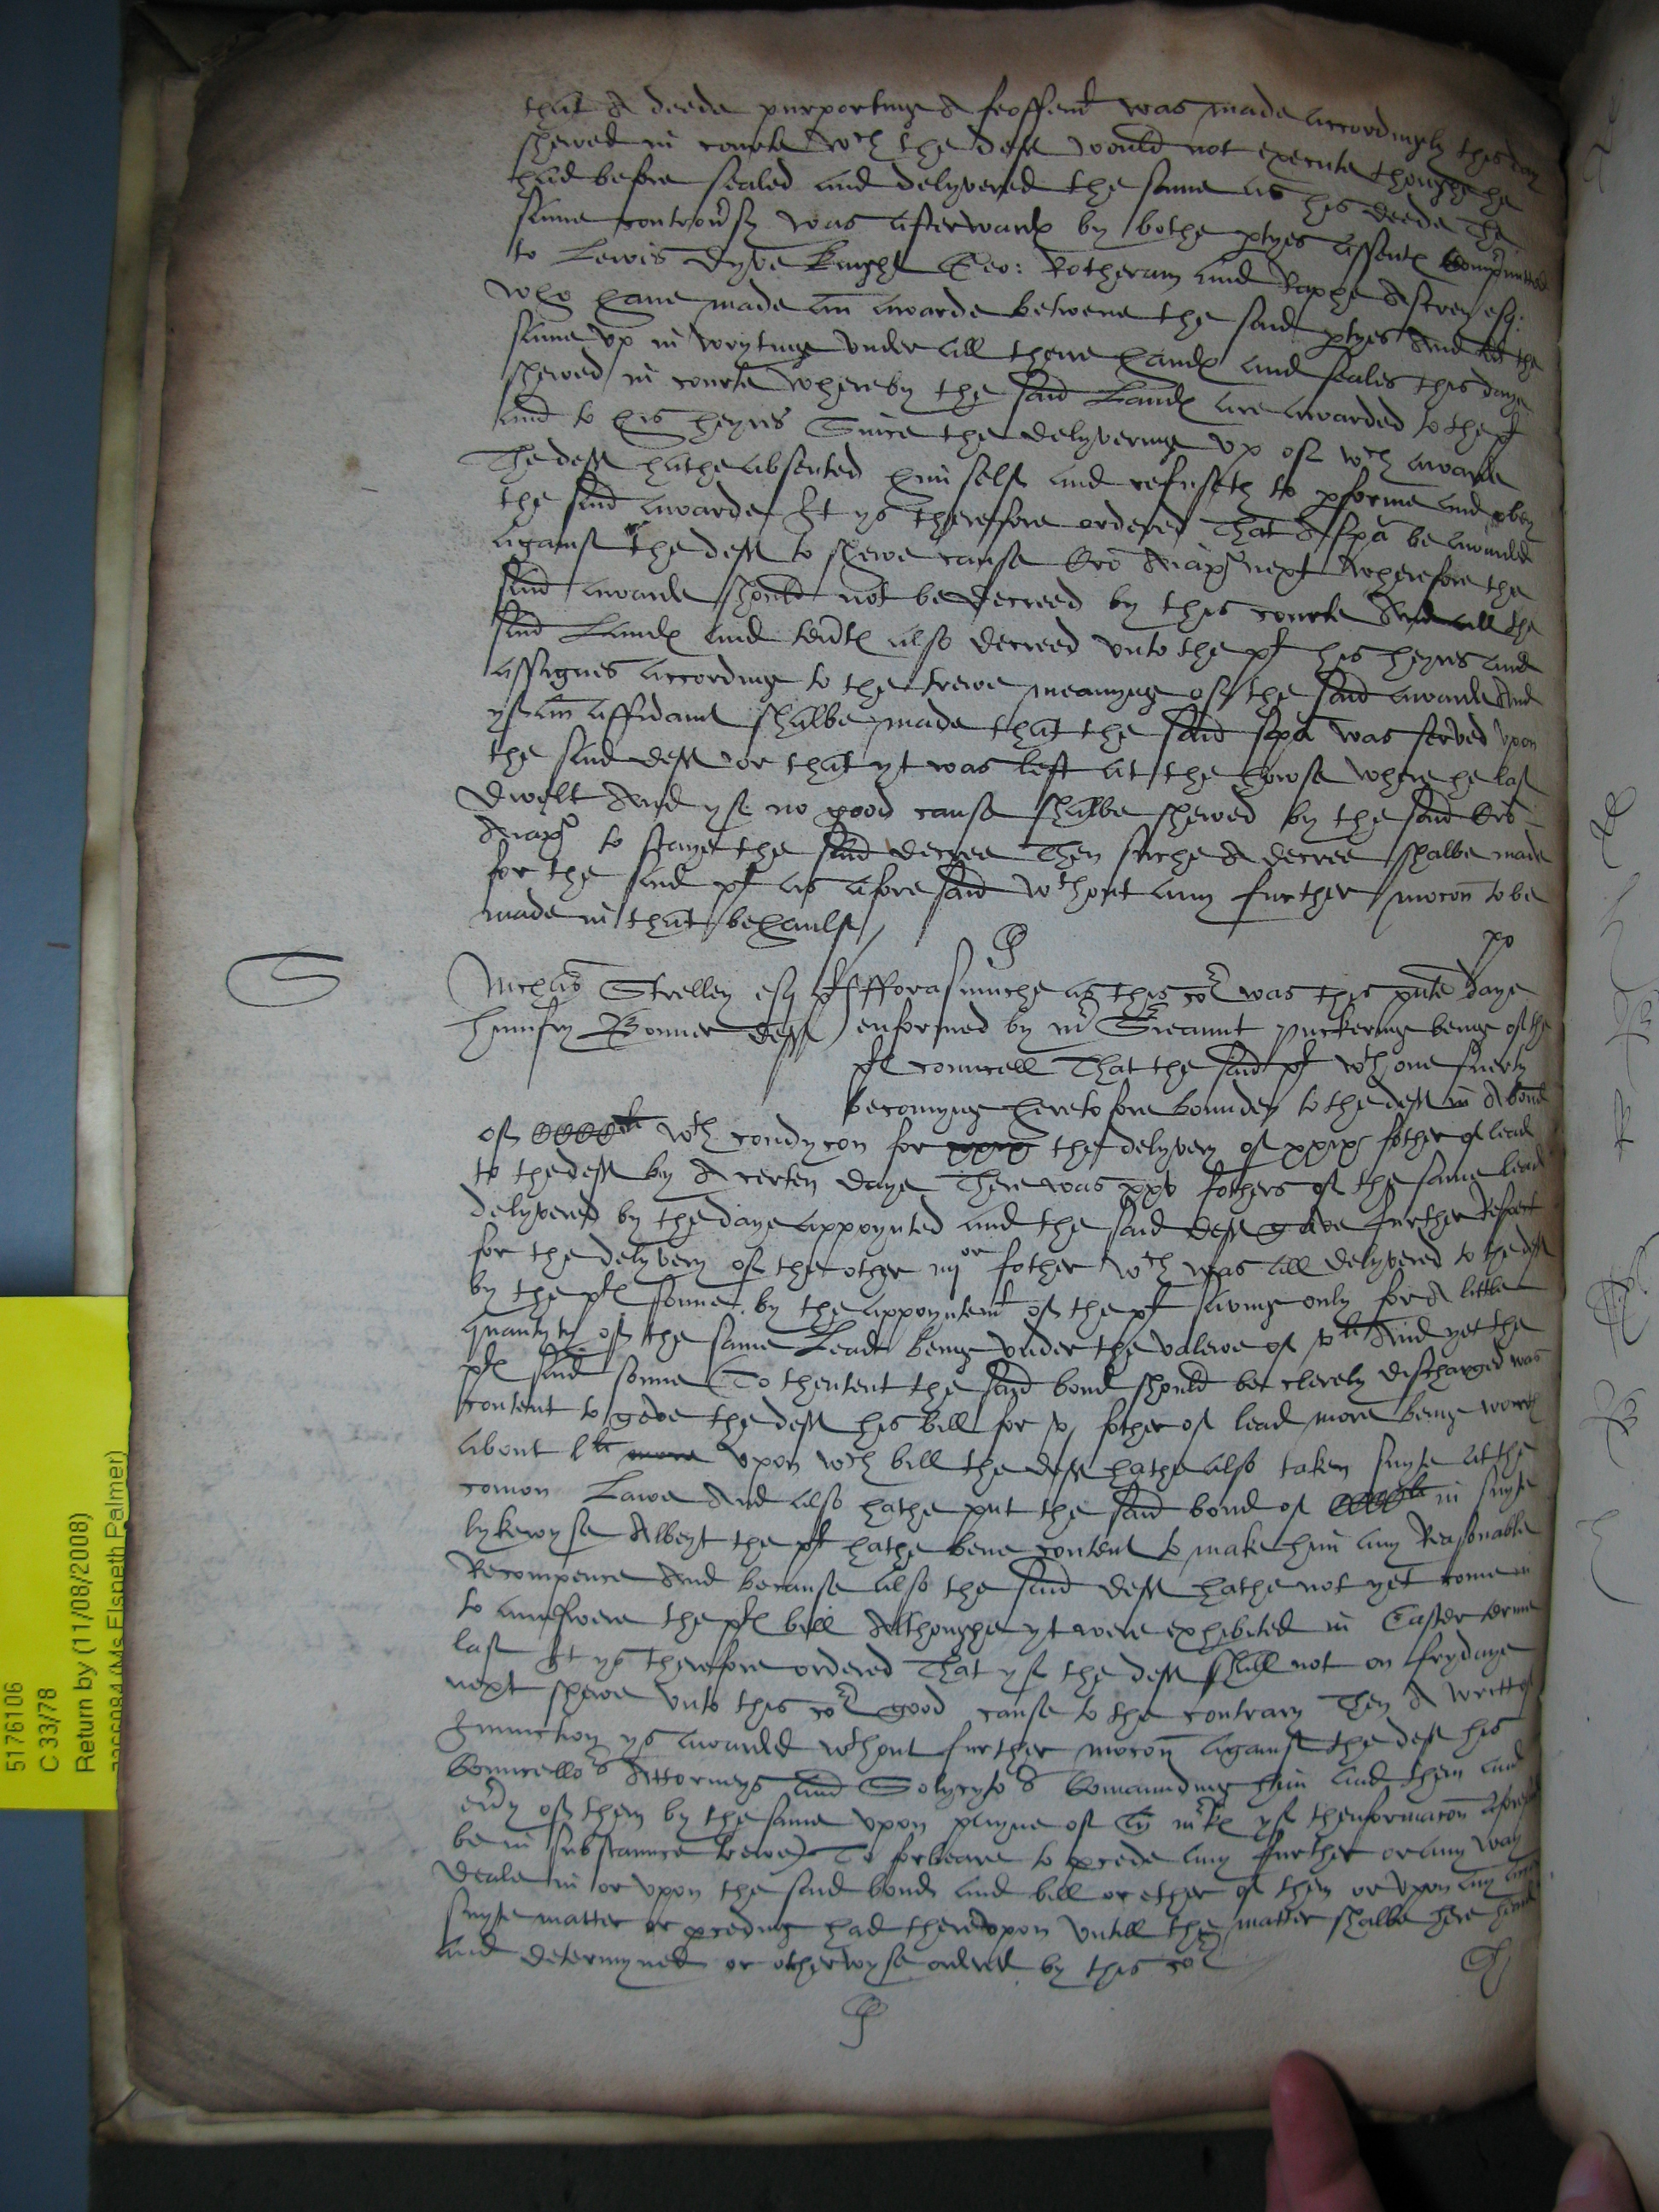 that A deede purportinge A feoffemt was made accordingly this day
shewed in courte wch the deft would not execute thoughe he
had before sealed and delyvered the same as his deede The
same controv'sy was afterward by bothe ptyes assent comprimitted
to Lewis Dyve knight Geo: Rotheram and Raphe Astrey esq:
who have made an awarde betwene the said ptyes And the
same up in wrytinge under all there hand and seales this daye
shewed in courte whereby the said Land are awarded to the pt
and to his heyres Since the delyveringe up of wch awarde
The deft hathe absented himself and refuseth to pforme and obey
the said awarde It ys therefore ordered That A spa be awarded
against the deft to shewe cause next Wherefore the
said awarde should not be decreed by this courte And all the
said Land and ten'te also decreed unto the pt his heyres and
assignes according to the trewe meanynge of the said awarde And
yf an affidavit shalbe made that the said spa was served upon
the said deft or that yt was left at the howse where he last
Dwelt And yf no good cause shalbe shewed by the said
to staye the said decree Then suche A decree shalbe made
for the said pt as aforesaid wthout any further mocon to be
made in that behaulf
po
Nichas Strelley esq pt Fforasmuche as this cor was this pnte daye
Humfry Bonner deft enformed by mr Sreaunt Puckeringe beinge of the
pt councell That the said pt wth one suerty
becomynge heretofore bounden to the deft in A bond
of CCCCli wth condycon for the delyvery of xxix fother of lead
to the deft by A certen daye There was xxv fothers of the same lead
delyvered by the daye appoynted and the said deft gave further Respect
for the delyvery of the other iiijor fother wch was all delyvered to the deft
by the pt sonne by the appoyntemt of the pt savinge only for A little
quantyty of the same Leade beinge under the valewe of And yet the
pt said sonne To thentent the said bond should be clerely discharged was
content to geve the deft his bill for fother of lead more being worth
about lli upon wch bill the deft hathe also taken suyte at the
comon Lawe And also hathe put the said bond of CCCCli in suyte
lykewyse Albeyt the pt hathe bene content to make him any Reasonable
Recompence And because also the said deft hathe not yet come in
to aunswere the pt bill Althoughe yt were exhibited in Easter terme
last It ys therefore ordered That yf the deft shall not on frydaye
next shewe unto this cor good cause to the contrary Then A writt of
Iniunction ys awarded wthout further mocon against the deft his
Councellors Attorneys and Solycytors Comaunding him and them and
ev'y of them by the same upon payne of mrk yf thenformacon aforesaid
be in substaunce trewe) To forbeare to pcede any further or any way
deale in or upon the said bond and bill or ether of them or upon any
suyte matter or pceding had thereupon untill the matter shalbe here heard
and determyned or otherwyse ordered by this cor
5176106
C 33/78
Return by (11/08/2008)
(Ms Elspeth Palmer)